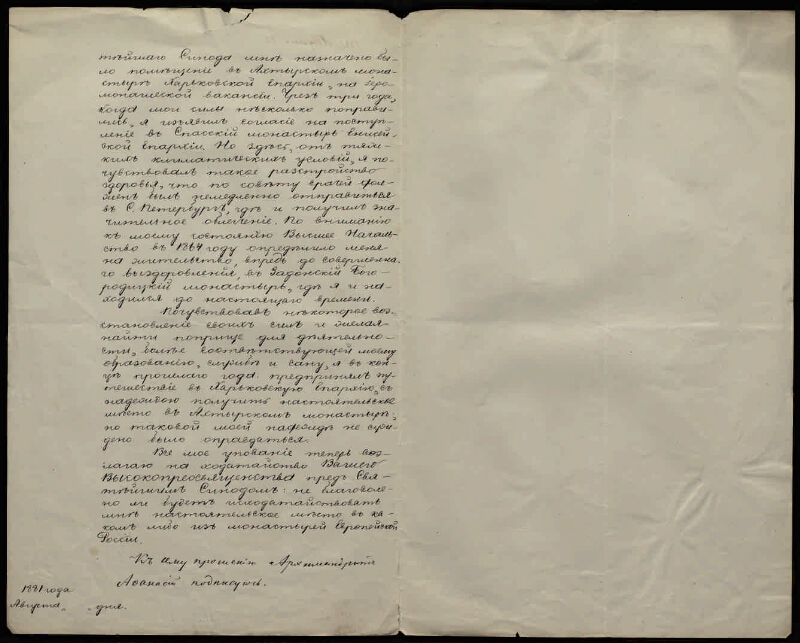 тѣйшаго Синода мнѣ назначено бы-
ло помѣщеніе въ Ахтырскомъ мона-
стырѣ Харьковской Епархіи, на Іеро-
монашеской вакансіи. Чрезъ три года,
когда мои силы нѣсколько поправи-
лись, я изъявилъ согласіе на поступ-
леніе въ Спасскій монастырь Енисей-
ской Епархіи. Но здѣсь, отъ тяж-
кихъ климатическихъ условій, я по-
чувствовалъ такое разстройство
здоровья, что по совѣту врачей дол-
женъ былъ немедленно отправиться
въ С. Петербургъ, гдѣ и получилъ зна-
чительное облегченіе. По вниманію
къ моему состоянію Высшее Началь-
ство въ 1864 году опредѣлило меня
на жительство, впредь до совершенна-
го выздоровленія, въ Задонскій Бого-
родицкій монастырь, гдѣ я и на-
ходился до настоящаго времени.
Почувствовавъ нѣкоторое воз-
становленіе своихъ силъ и желая
найти поприще для дѣятельно-
сти, болѣе соотвѣтствующей моему
образованію, службѣ и сану, я въ кон-
цѣ прошлаго года предпринялъ пу-
тешествіе въ Харьковскую Епархію, съ
надеждою получить настоятельское
мѣсто въ Ахтырскомъ монастырѣ,
но таковой моей надеждѣ не суж-
дено было оправдаться.
Все мое упованіе теперь воз-
лагаю на ходатайство Вашего
Высокопреосвященства предъ Свя-
тѣйшимъ Синодомъ: не благоволе-
но ли будетъ исходатайствовать
мнѣ настоятельское мѣсто въ ка-
комъ либо изъ монастырей Европейской
Россіи.
Къ сему прошенію Архимандритъ
Аѳанасій подписуюсь.
1871 года
Августа „ „ дня.